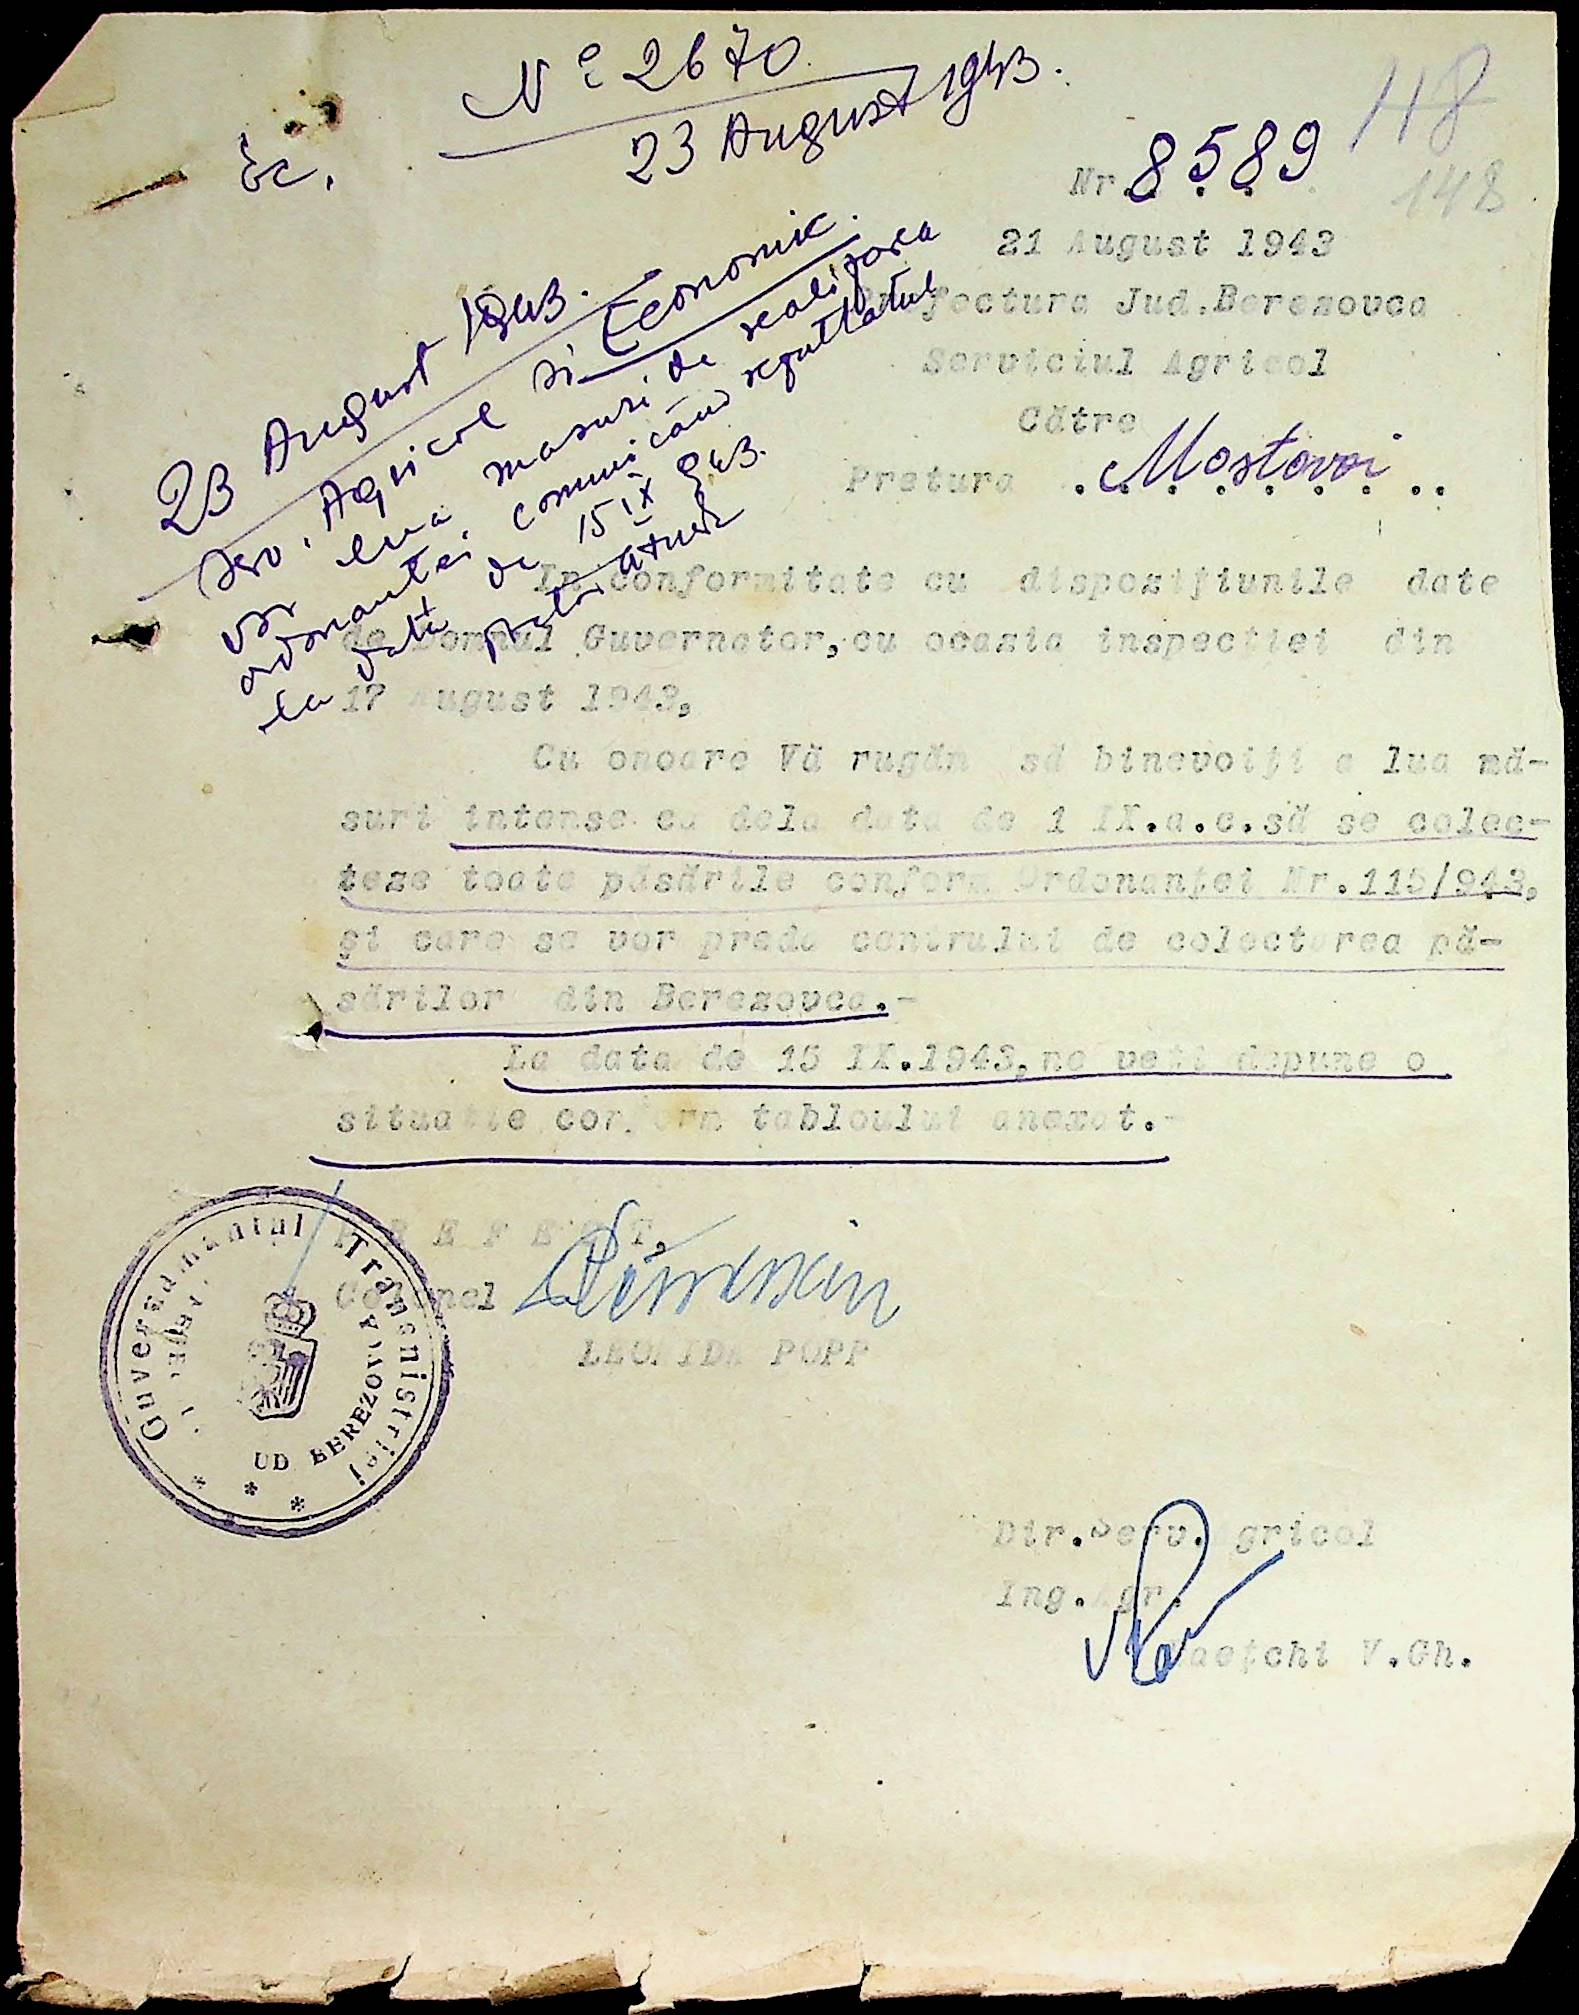 Nº 2670
23 August 1943.
Ec.
118
148
Nr. 8589
21 August 1943
Prefectura Jud.Berezovca
Serviciul Agricol
Către
Pretura Mostovoi
23 August 1943.
Serv. Agricol si Economic.
vor lua masuri de realizarea
ordonantei, comunicând rezultatul
la data de 15 IX 943.
In conformitate cu dispozițiunile date
de Domnul Guvernator, cu ocazia inspecției din
17 August 1943,
Cu onoare Vă rugăm să binevoiți a lua mă-
suri intense ca dela data de 1 IX.a.c.să se colec-
teze toate păsările conform Ordonanței Nr.115/943,
și care se vor preda centrului de colectarea pă-
sărilor din Berezovca.-
La data de 15 IX.1943, ne veți depune o
situație conform tabloului anexat.-
P R E F E C T,
Colonel
LEONIDA POPP
Guvernământul Transnistriei
JUD BEREZOVCA
Dir.Serv.Agricol
Ing.Agr.
V.Gh.